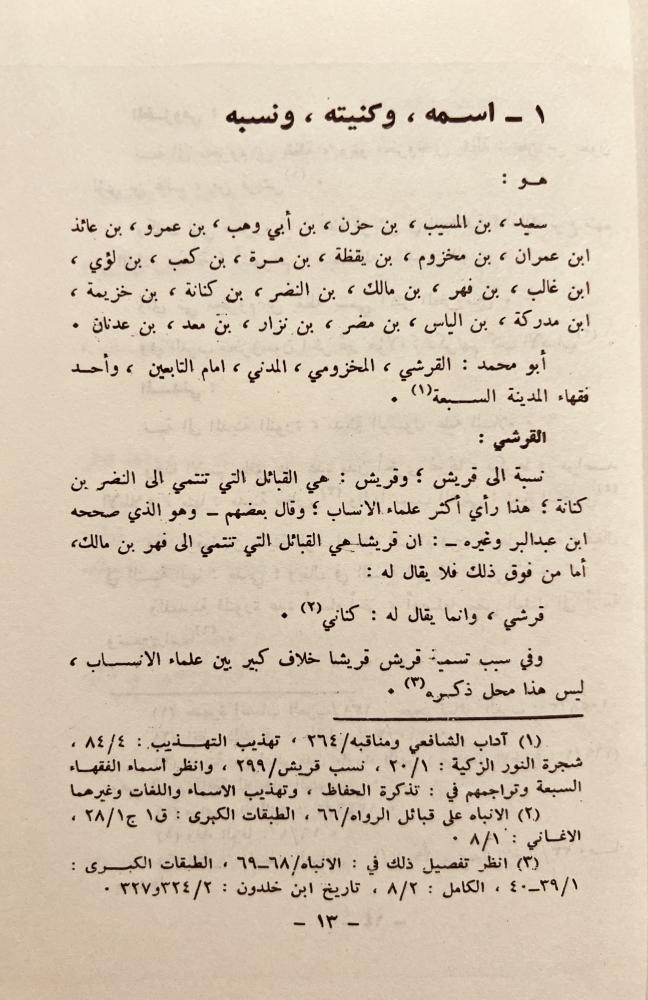 ١ ــ اســمه ، وكنيته ، ونسبه
هــو :
سعيد ، بن المسيب ، بن حزن ، بن أبي وهب ، بن عمرو ، بن عائذ
ابن عمران ، بن مخزوم ، بن يقظة ، بن مــرة ، بن كعب ، بن لؤي ،
ابن غالب ، بن فهر ، بن مالك ، بن النضر ، بن كنانة ، بن خزيمة ،
ابن مدركة ، بن الياس ، بن مضر ، بن نزار ، بن معد ، بن عدنان ٠
أبو محمد : القرشي ، المخزومي ، المدني ، امام التابعين ، وأحــد
فقهاء المدينة الســــبعة(١) ٠
القرشي :
نسبة الى قريش ؛ وقريش : هي القبائل التي تنتمي الى النضر بن
كنانة ؛ هذا رأي أكثر علماء الانساب ؛ وقال بعضهم ــ وهو الذي صححه
ابن عبدالبر وغيره ــ : ان قريشا هي القبائل التي تنتمي الى فهر بن مالك،
أما من فوق ذلك فلا يقال له :
قرشي ، وانما يقال له : كناني(٢) ٠
وفي سبب تسمية قريش قريشا خلاف كبير بين علماء الانســـاب ،
ليس هذا محل ذكــره(٣) ٠
(١) آداب الشافعي ومناقبه/٢٦٤ ، تهذيب التهـــذيب : ٨٤/٤ ،
شجرة النور الزكية : ٢٠/١ ، نسب قريش/٢٩٩ ، وانظر أسماء الفقهـاء
السبعة وتراجمهم في : تذكرة الحفاظ ، وتهذيب الاسماء واللغات وغيرهما
(٢) الانباه على قبائل الرواه/٦٦ ، الطبقات الكبرى : ق١ ج٢٨/١ ،
الاغاني : ٨/١ ٠
(٣) انظر تفصيل ذلك في : الانباه/٦٨ــ٦٩ ، الطبقات الكبــرى :
٣٩/١ــ٤٠ ، الكامل : ٨/٢ ، تاريخ ابن خلدون : ٣٢٤/٢و٣٢٧ ٠
ــ ١٣ ــ